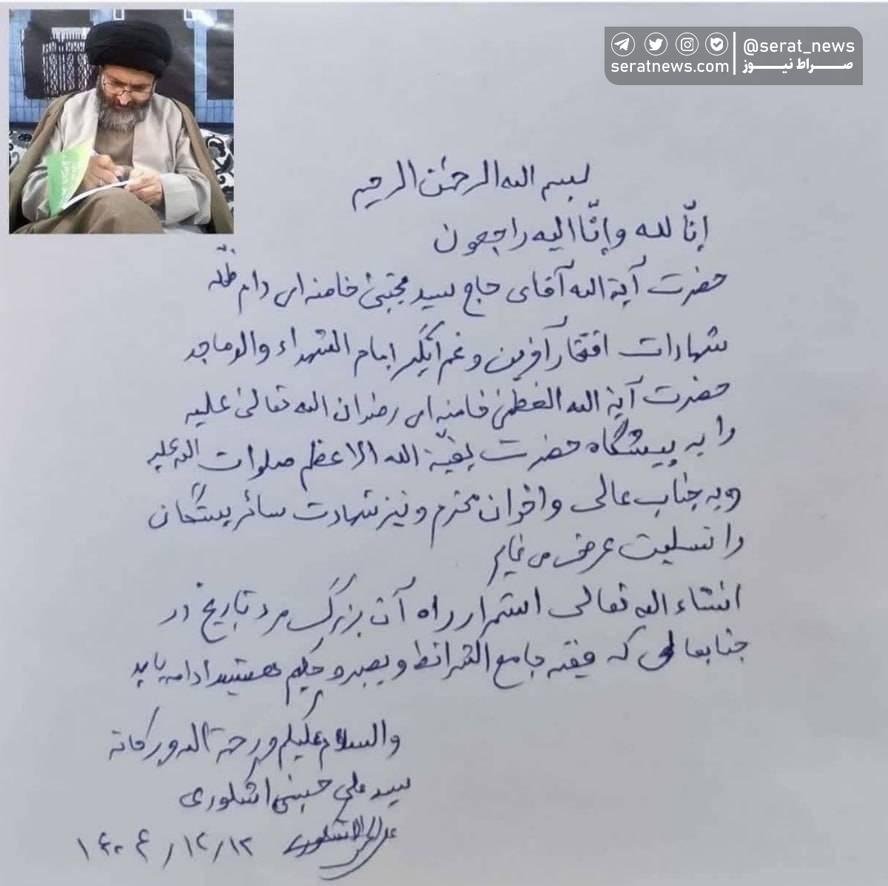 @serat_news
seratnews.com
صـــراط نیـــوز
بسم الله الرحمن الرحیم
إنّا لله وإنّا الیه راجعون
حضرت آیة الله آقای حاج سید مجتبیٰ خامنه ای دام ظله
شهادت افتخارآفرین و غم انگیز امام الشهداء والد ماجد
حضرت آیة الله العظمیٰ خامنه ای رضوان الله تعالیٰ علیه
را به پیشگاه حضرت بقیّة الله الاعظم صلوات الله علیه
و به جناب عالی و اخوان محترم و نیز شهادت سائر بستگان
را تسلیت عرض می نمایم
انشاء الله تعالی استمرار راه آن بزرگ مرد تاریخ در
جنابعالی که فقیه جامع الشرائط و بصیر و حکیم هستید ادامه یابد
والسلام علیکم و رحمة الله و برکاته
سید علی حسینی اشکوری
۱۴۰۴/۱۲/۱۲